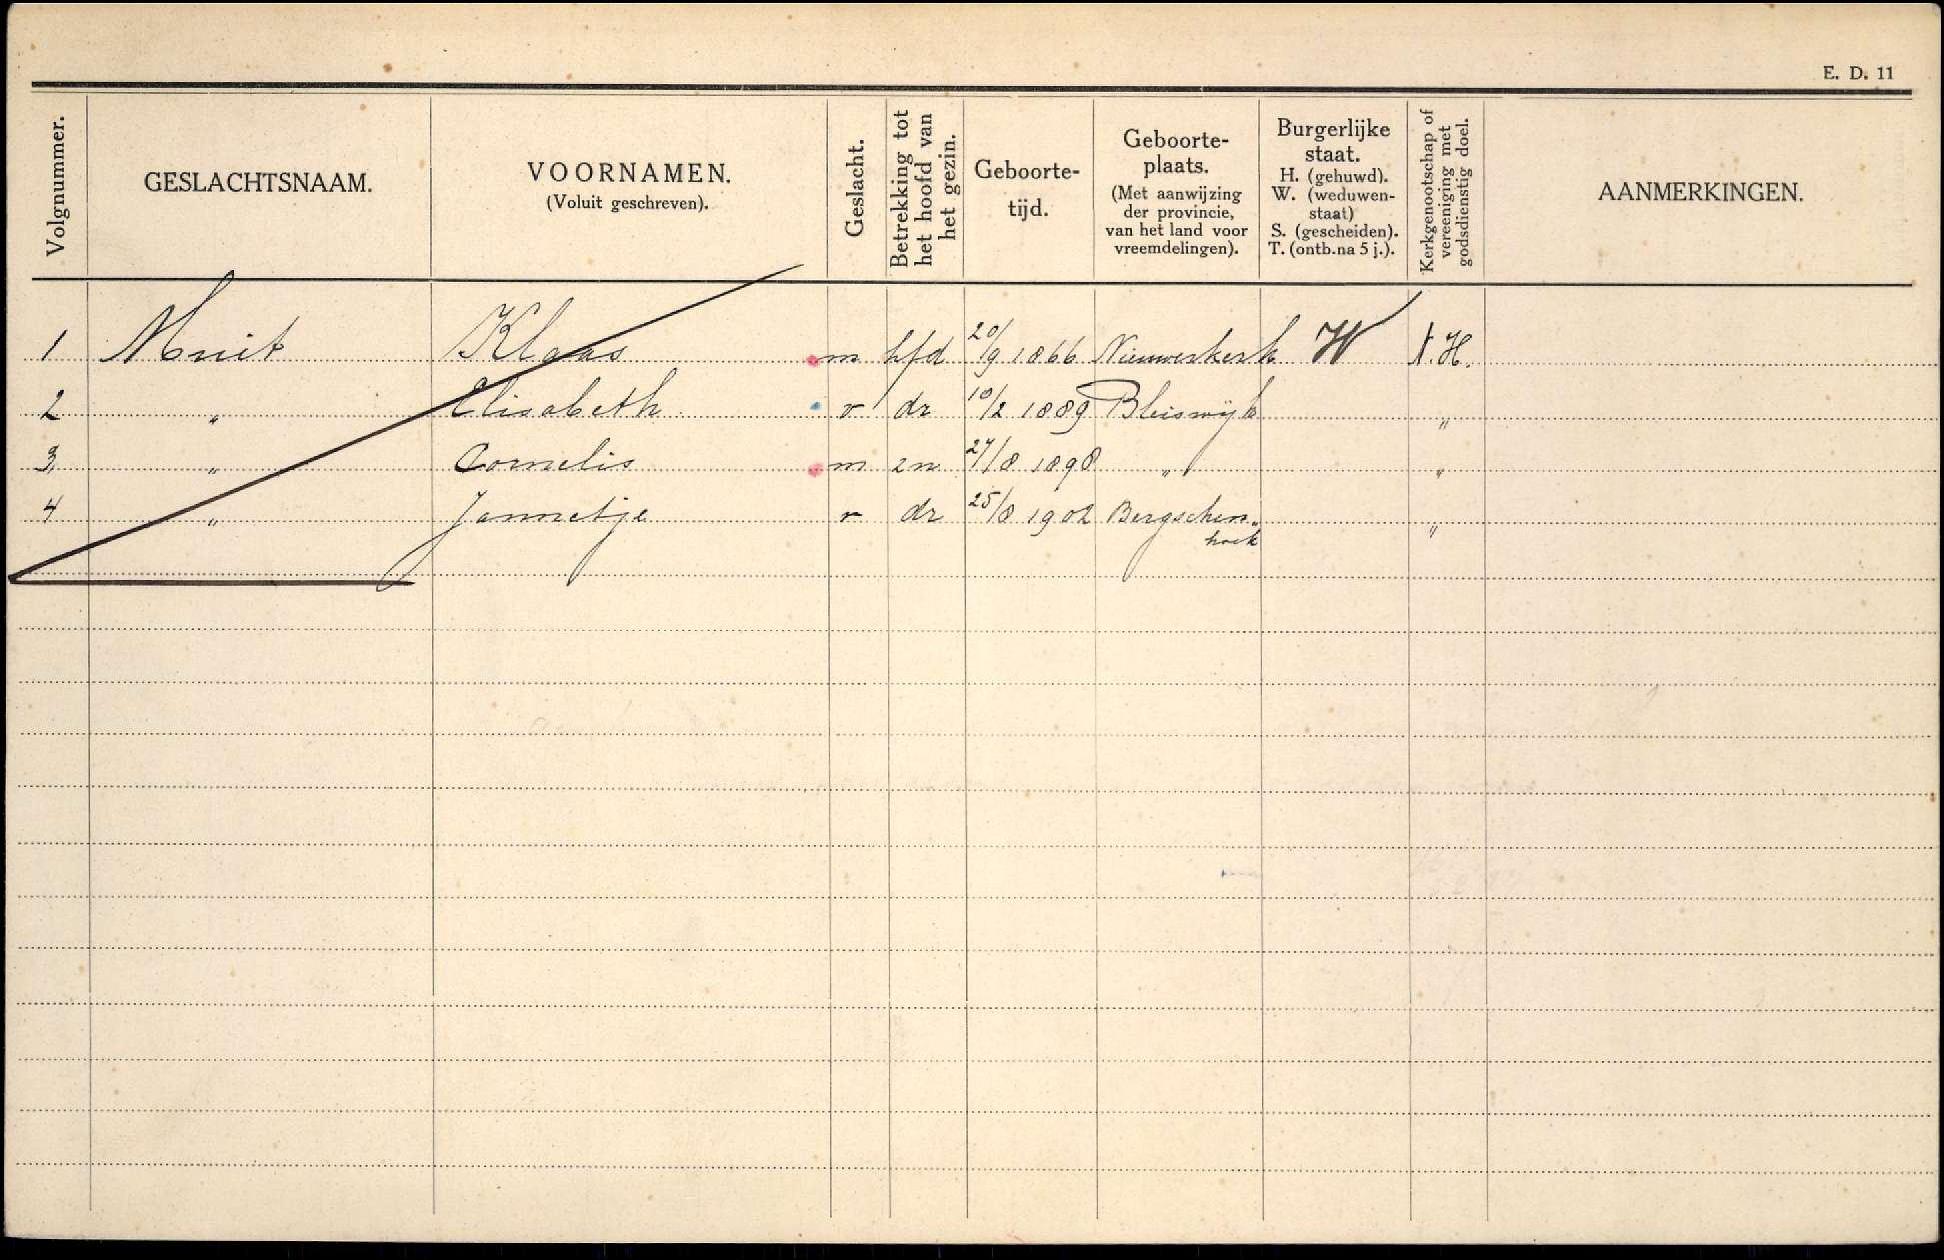 E. D. 11
Volgnummer. GESLACHTSNAAM. VOORNAMEN. (Voluit geschreven). Geslacht. Betrekking tot het hoofd van het gezin. Geboorte-tijd. Geboorte-plaats. (Met aanwijzing der provincie, van het land voor vreemdelingen). Burgerlijke staat. H. (gehuwd). W. (weduwen-staat) S. (gescheiden). T. (ontb. na 5 j.). Kerkgenootschap of vereeniging met godsdienstig doel. AANMERKINGEN.
1 Muit Klaas m hfd 20/9 1866 Nieuwerkerk W N.H.
2 " Elisabeth v dr 10/2 1889 Bleiswijk "
3 " Cornelis m zn 27/8 1898 " "
4 " Jannetje v dr 25/8 1902 Bergschen- "
hoek